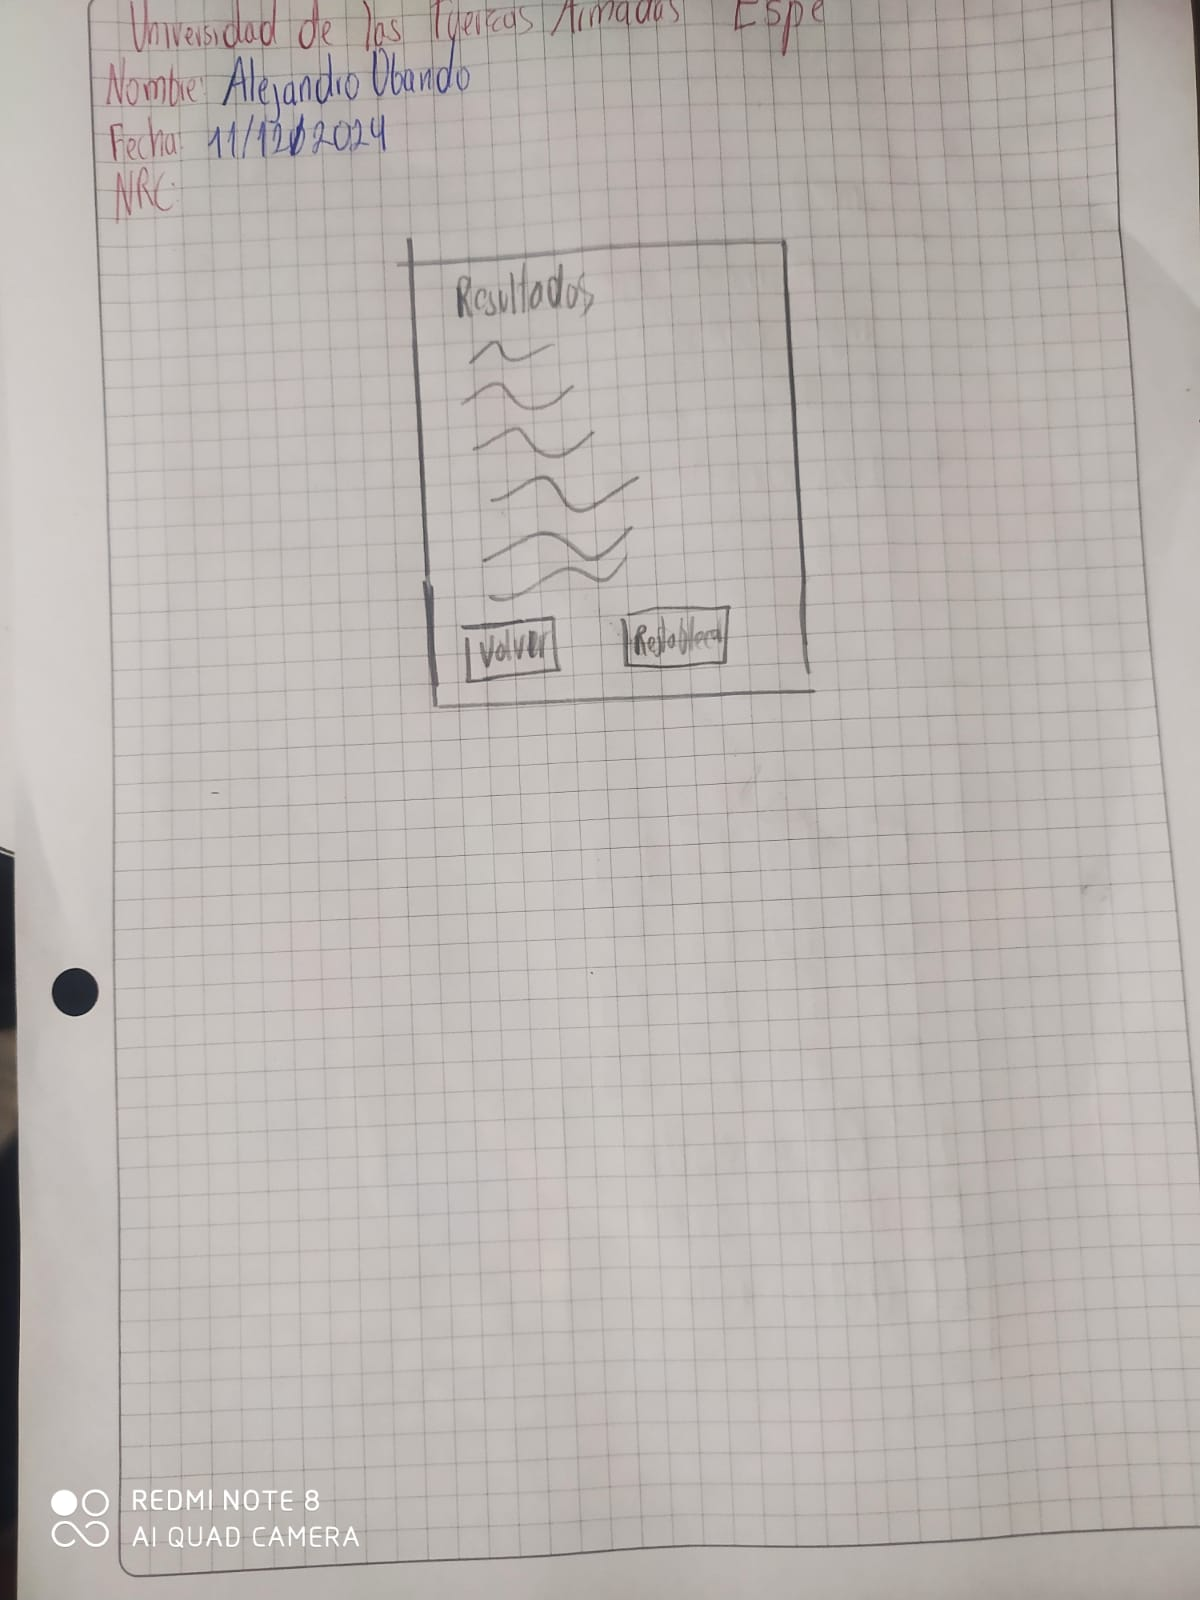 Universidad de las Fuerzas Armadas Espe
Nombre: Alejandro Obando
Fecha: 11/12/2024
NRC:
Resultados
Volver
Restablecer
REDMI NOTE 8
AI QUAD CAMERA